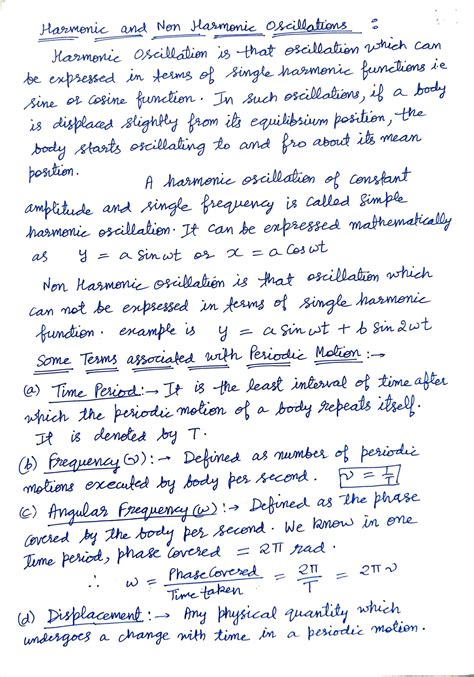 Harmonic and Non Harmonic Oscillations :
Harmonic Oscillation is that oscillation which can
be expressed in terms of single harmonic functions i.e
sine or cosine function. In such oscillations, if a body
is displaced slightly from its equilibrium position, the
body starts oscillating to and fro about its mean
position.
A harmonic oscillation of constant
amplitude and single frequency is called simple
harmonic oscillation. It can be expressed mathematically
as y = a sin ωt or x = a cos ωt
Non Harmonic oscillation is that oscillation which
can not be expressed in terms of single harmonic
function. example is y = a sin ωt + b sin 2ωt
Some Terms associated with Periodic Motion :→
(a) Time Period :→ It is the least interval of time after
which the periodic motion of a body repeats itself.
It is denoted by T.
(b) Frequency (ν) :→ Defined as number of periodic
motions executed by body per second. ν = 1/T
(c) Angular Frequency (ω) :→ Defined as the phase
covered by the body per second. We know in one
time period, phase covered = 2π rad.
∴ ω = Phase Covered / Time taken = 2π/T = 2πν
(d) Displacement :→ Any physical quantity which
undergoes a change with time in a periodic motion.